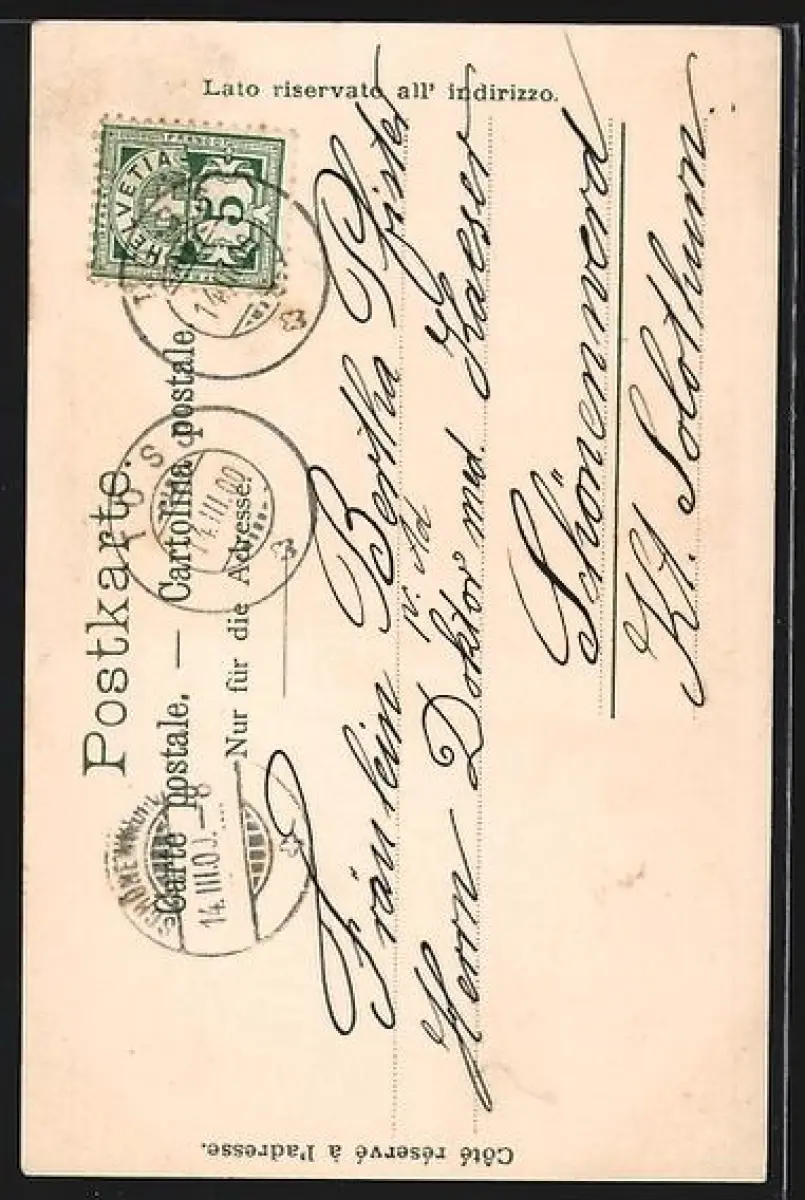 Postkarte.
Carte postale. — Cartolina postale.
Nur für die Adresse.
Lato riservato all' indirizzo.
Côté réservé à l'adresse.
FRANCO
HELVETIA 5
14.III.00
14.III.00
Fräulein Bertha Pfister
Herrn Doktor med. Kaeser
Schönenwerd
Kt. Solothurn.